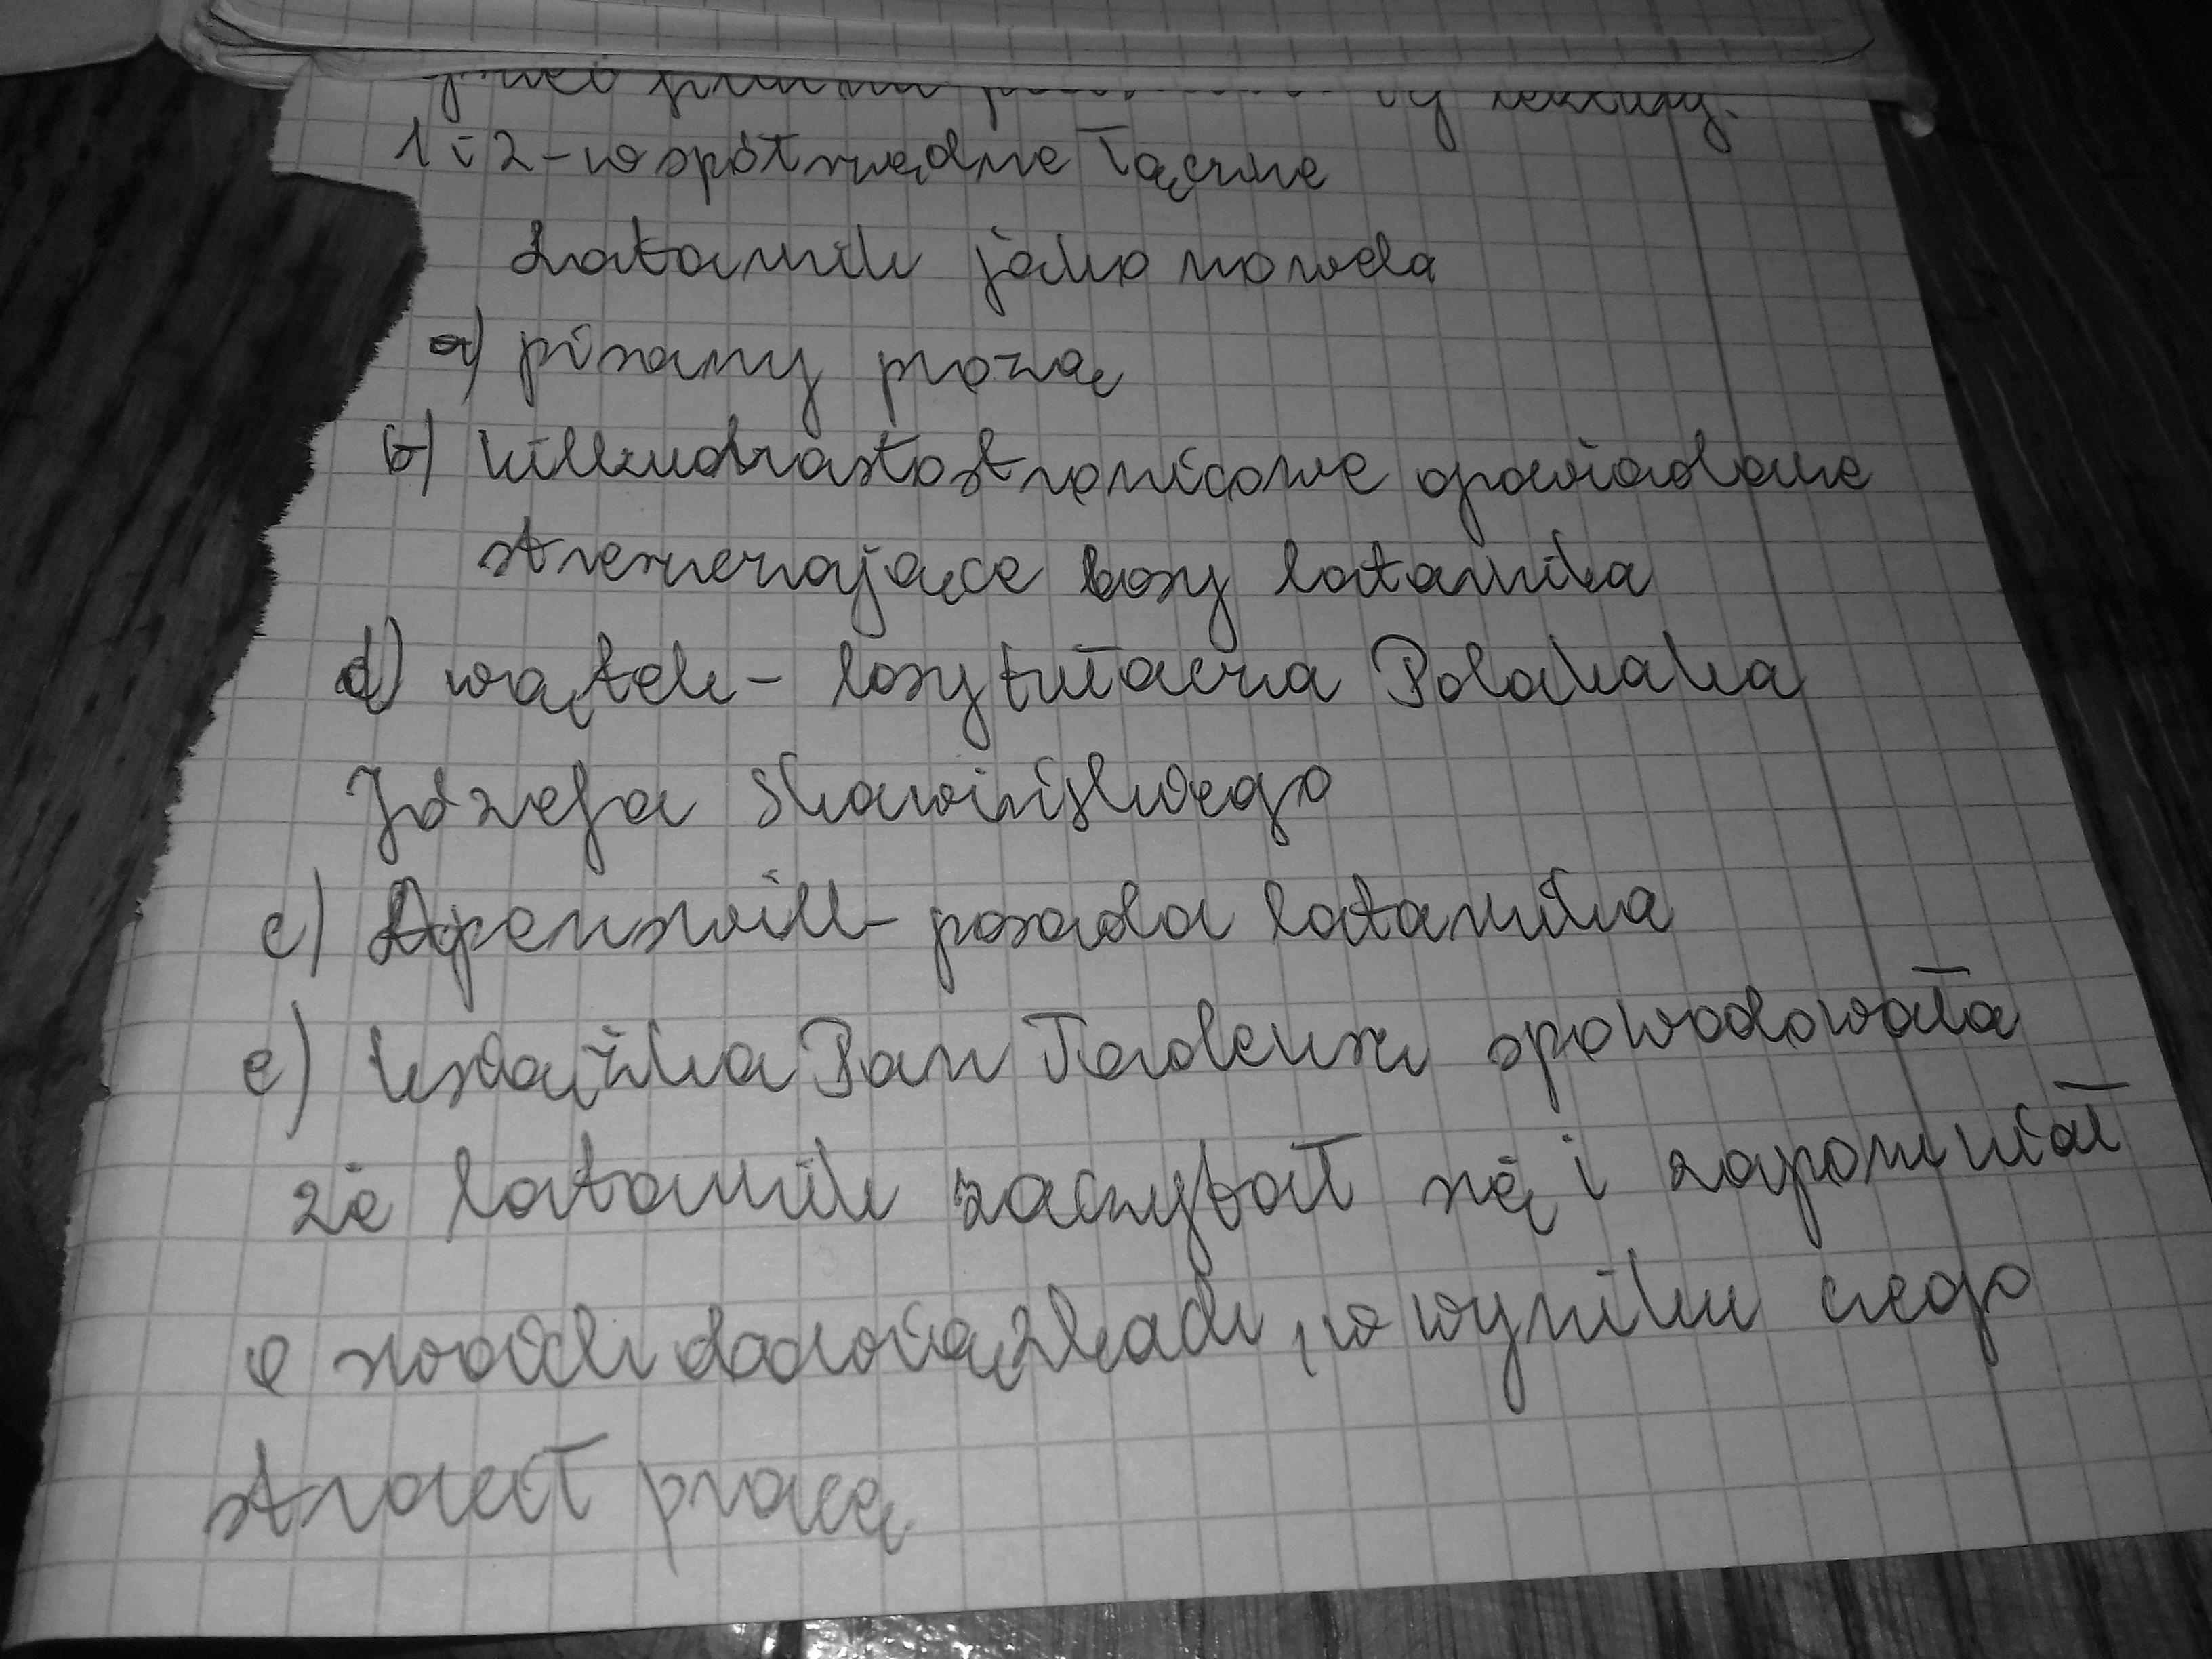 lektury.
1 i 2 - współrzędne łączne
Latarnik jako nowela
a) pisany prozą
b) kilkudziastostronicowe opowiadanie
streszczające losy latarnika
d) wątek - losy tułacza Polakaka
Józefa Skawińskiego
c) Aspenwill - posada latarnika
e) książka Pan Tadeusz spowodowała
że latarnik zaczytał się i zapomniał
o swoich obowiązkach, w wyniku czego
stracił pracę